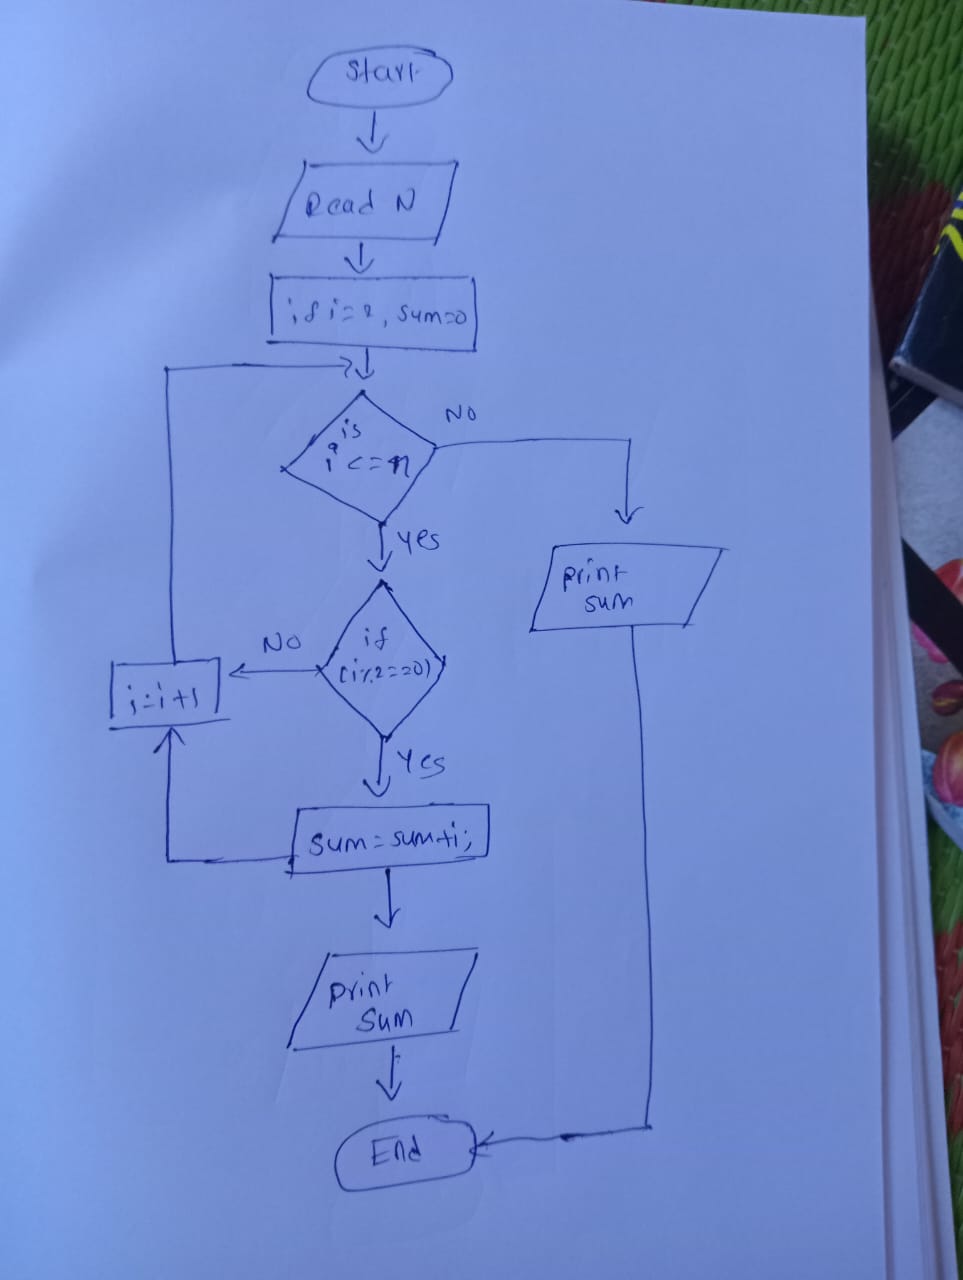 Start
Read N
if i=2, sum=0
is
i<=n
NO
yes
print
sum
if
(i%2==0)
NO
i=i+1
Yes
sum=sum+i;
print
sum
End